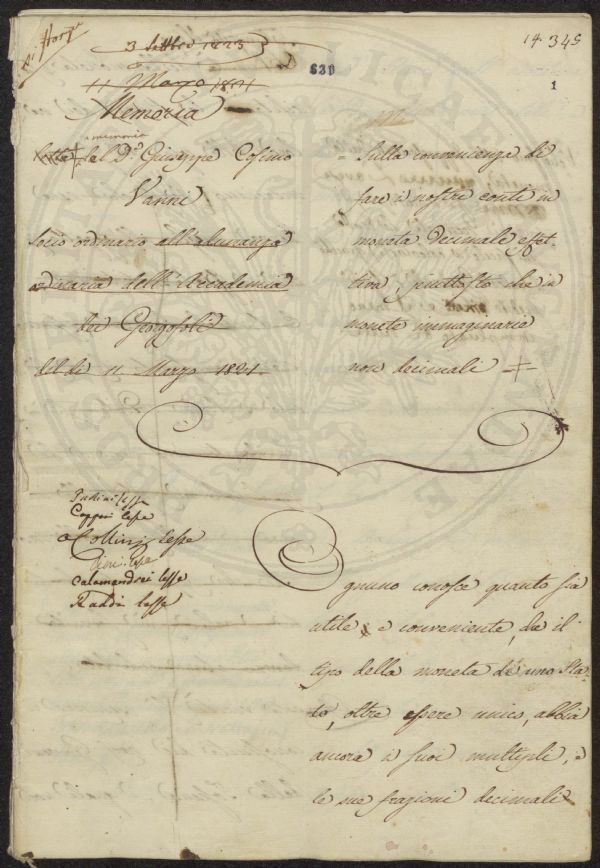 3 Settbre 1823
14. 345
630
1
11 Marzo 1821
Memoria
memoria
letta del D.r Giuseppe Cosimo
Vanni
Socio ordinario all'adunanza
ordinaria dell'Accademia
dei Georgofili
del dì 11 Marzo 1821.
= Sulla convenienza di
fare i nostri conti in
moneta decimale effet-
tiva, piuttosto che in
monete immaginarie
non decimali =
Coppini lesse
Collini Lesse
lesse
Calamandrei lesse
Raddi lesse
Ognuno conosce quanto sia
utile, e conveniente, che il
tipo della moneta di uno Sta-
to, oltre essere unico, abbia
ancora i suoi multipli, e
le sue frazioni decimali